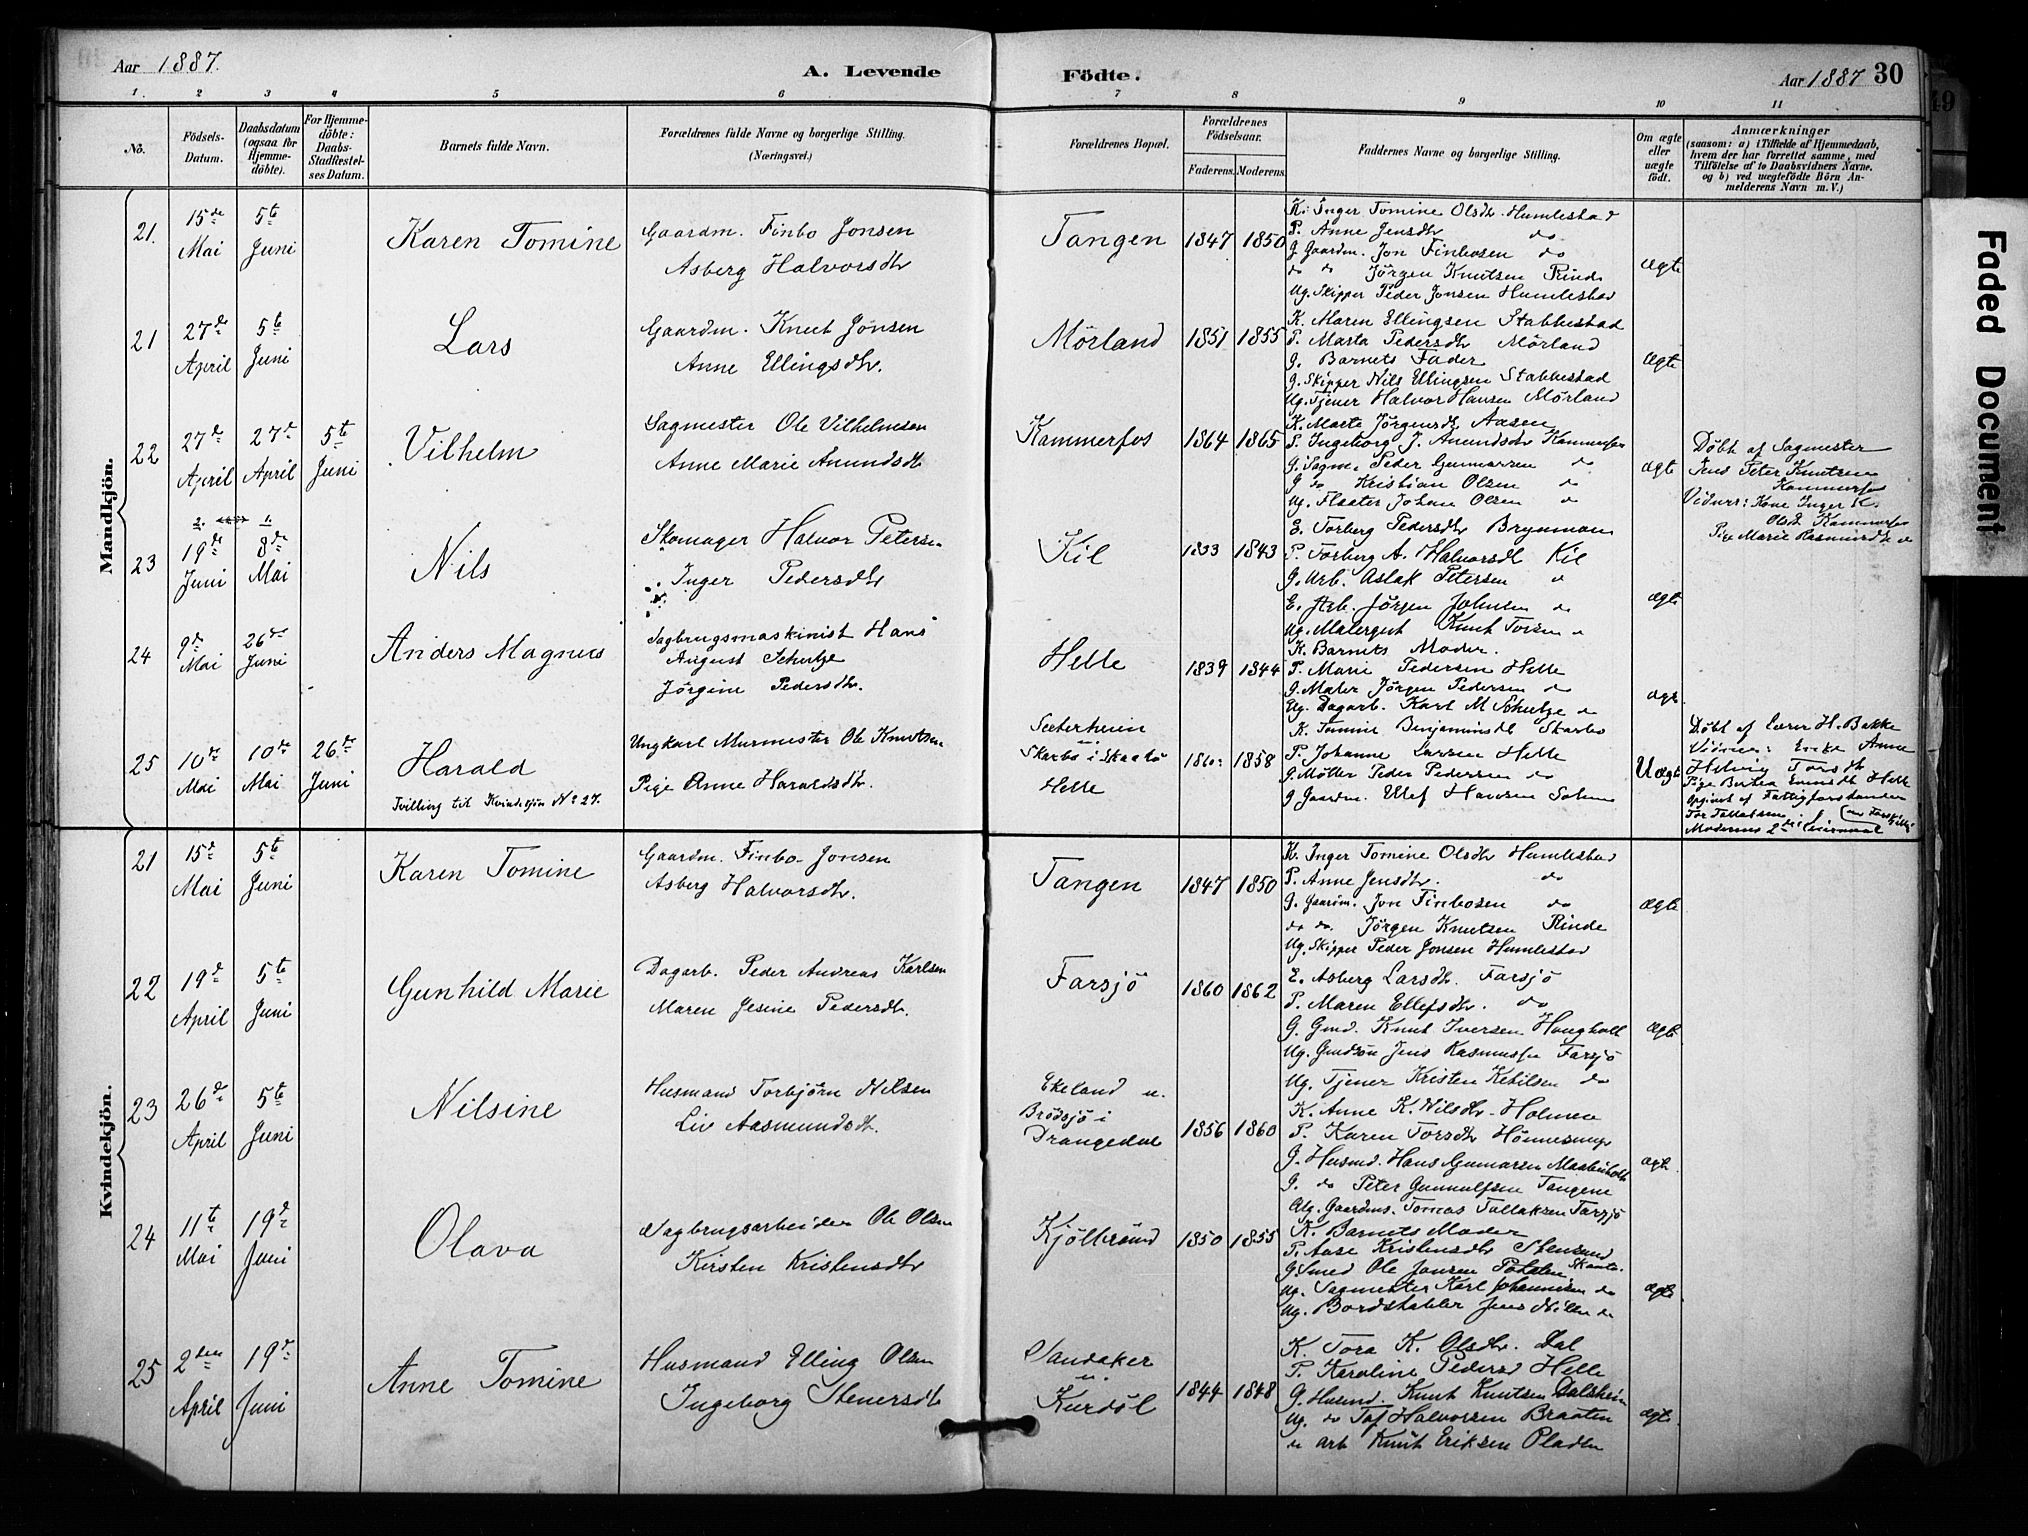 Aar 1887.
A. Levende
Födte.
Aar 1887 30
1. 2 3 4 5 6 7 8 9 10 11
No.
Födsels-Datum.
Daabsdatum (ogsaa for Hjemme-döbte).
For Hjemme-döbte: Daabs-Stadfæstel-ses Datum.
Barnets fulde Navn.
Forældrenes fulde Navne og borgerlige Stilling.
(Næringsvei.)
Forældrenes Bopæl.
Forældrenes Födselsaar.
Faderens. Moderens.
Faddernes Navne og borgerlige Stilling.
Om ægte eller uægte födt.
Anmærkninger
(saasom: a) i Tilfælde af Hjemmedaab,
hvem der har forrettet samme, med
Tilföielse af to Daabsvidners Navne.
og b) ved uægtefödte Börn An-
melderens Navn m. V.)
Mandkjön.
21. 15de Mai 5te Juni Karen Tomine
Gaardm. Finbo Jonsen
Asberg Halvorsdtr
Tangen 1847 1850
K. Inger Tomine Olsdtr. Humlestad
P. Anne Jensdtr do
G. Gaardm. Jon Finbosen do
do do Jörgen Knutsen Rinde
Ug. Skipper Peder Jonsen Humlestad
ægte
21 27de April 5te Juni Lars
Gaardm. Knut Jonsen
Anne Ellingsdtr.
Mörland 1851 1855
K. Maren Ellingsen Stabbestad
P. Marta Pedersdtr Mörland
G. Barnets Fader
G. Skipper Nils Ellingsen Stabbestad
Ug. Tjener Halvor Hansen Mörland
ægte
22 27de April 27de April 5te Juni Vilhelm
Sagmester Ole Vilhelmsen
Anne Marie Amundsdt
Kammerfos 1864 1865
K. Marte Jörgensdt Aasen
P. Ingeborg J. Amundsdtr Kammerfos
G. Sagm. Peder Gunnarsen do
G do Kristian Olsen do
Ug. Fløter Johan Olsen do
ægte
Döbt af Sagmester
Jens Peter Knutsen
Kammerfos
Vidner: Kone Inger K.
Olsdt Kammerfos
Pige Marie Rasmusdt do
2. 1.
23 19de Juni 8de Mai Nils
Skomager Halvor Petersen
Inger Pedersdtr
Kil 1833 1843
E. Torberg Pedersdtr Brynman
P. Torberg A. Halvorsdt Kil
G. Arb. Aslak Petersen do
E. Arb. Jörgen Johnsen do
Ug. Malergut Knut Torsen do
ægte
24 9de Mai 26de Juni Anders Magnus
Sagbrugsmaskinist Hans
August Schultze
Jörgine Pedersdtr.
Helle 1839 1844
K. Barnets Moder.
P. Marie Pedersen Helle
G. Maler Jörgen Pedersen do
Ug. Dagarb. Karl M Schultze do
ægte
25 10de Mai 10de Mai 26de Juni Harald
Tvilling til Kvindekjön No 27.
Ungkarl Murmester Ole Knutsen
Pige Anne Haraldsdtr.
Sæterheim
u.
Skarbo i Skaatö
Helle
1860 1858
K. Tomine Benjaminsdt Skarbo
P. Johanne Larsen Helle
G. Möller Peder Pedersen do
G Gaardm. Ellef Hansen
Uægte
Döbt af Lærer H. Bakke
Vidner: Enke Anne
Helvig Torsdt
Pige Berthe Helle
Opgivet af Fattigforstander
Tor Tallaksen
Moderens 2det Leiermaal
Kvindekjön.
21 15de Mai 5te Juni Karen Tomine
Gaardm. Finbo Jonsen
Asberg Halvorsdtr.
Tangen 1847 1850
K. Inger Tomine Olsdtr Humlestad
P. Anne Jensdtr. do
G. Gaardm. Jon Finbosen do
do do. Jörgen Knutsen Rinde
Ug. Skipper Peder Jonsen Humlestad
ægte
22 19de April 5te Juni Gunhild Marie
Dagarb. Peder Andreas Karlsen
Maren Jesine Pedersdtr.
Farsjö 1860 1862
E. Asberg Larsdtr. Farsjö
P. Maren Ellefsdtr. do
G. Gmd. Knut Iversen Haugholt
Ug. Gmdsön Jens Rasmussen Farsjö
Ug. Tjener Kristen Ketilsen do
ægte
23 26de April 5te Juni Nilsine
Husmand Torbjörn Nilsen
Liv Aasmundsdt.
Ekeland u.
Brödsjö i
Drangedal
1856 1860
K. Anne K. Nilsdtr. Holmen
P. Karen Torsdtr
G. Husmd. Hans Gunnarsen
G. do Peter Gunnulfsen Tangene
Ug. Gaardms. Tomas Tallaksen Farsjö
ægte.
24 11te Mai 19de Juni Olava
Sagbrugsarbeider Ole Olsen
Kirsten Kristensdtr
Kjölbrönd 1850 1855
K. Barnets Moder
P. Aase Kristensdtr Stensund
G. Smed Ole Jansen Skaatö
Ug. Sagmester Karl Johannesen do
Ug. Bordstabler Jens Nilsen do
ægte
25 2den April 19de Juni Anne Tomine
Husmand Elling Olsen
Ingeborg Stenersdt
Sandaker
u.
Kurdöl
1844 1848
K. Tora K. Olsdtr. Dal
P. Karoline Pedersd Helle
G. Husmd. Knut Knutsen Dalsheim
Ug. do Taf Halvorsen Braaten
do arb Knut Eriksen Pladsen
ægte.
Faded Document
49